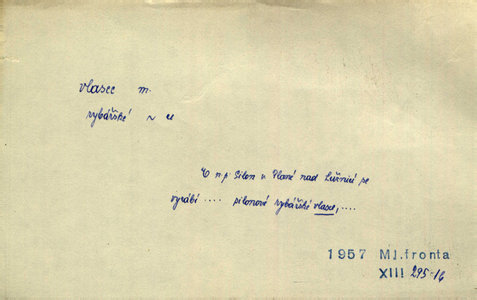 vlasec m.
rybářské ~ e
V n.p. Silon v Plané nad Lužnicí se
vyrábí .... silonové rybářské vlasce, ....
1957 Ml.fronta
XIII 295-14